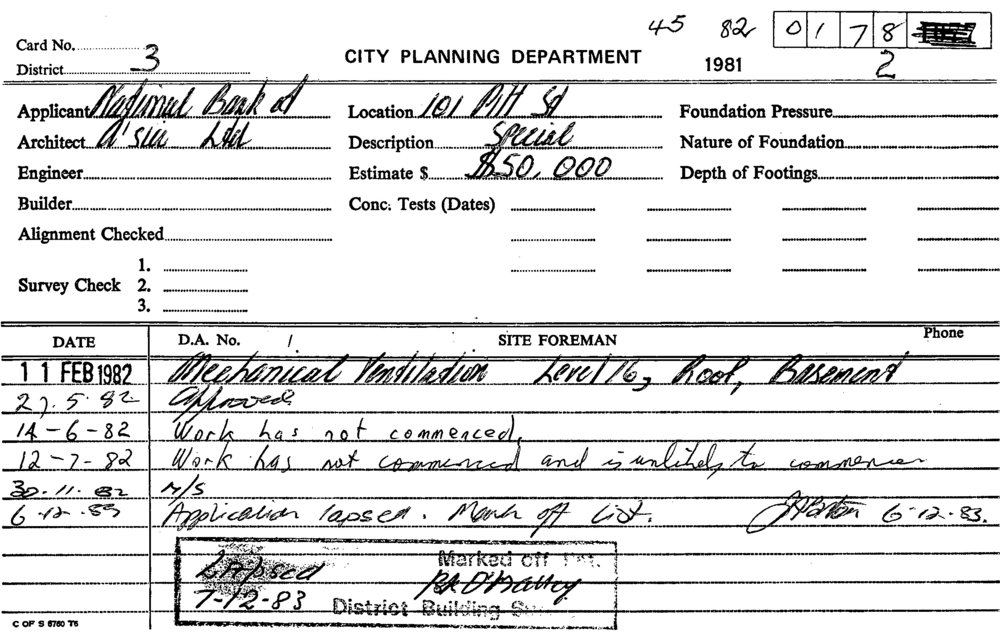 45 82 0178
Card No. CITY PLANNING DEPARTMENT 1981 2
District 3
Applicant National Bank of Location 101 Pitt St Foundation Pressure
Architect A'sia Ltd Description Special Nature of Foundation
Engineer Estimate $ $50,000 Depth of Footings
Builder Conc. Tests (Dates)
Alignment Checked
1.
Survey Check 2.
3.
DATE D.A. No. / SITE FOREMAN Phone
11 FEB 1982 Mechanical Ventilation Level 16, Roof, Basement
27.5.82 Approved
14-6-82 Work has not commenced,
12-7-82 Work has not commenced and is unlikely to commence
30.11.82 N/S
6-12-83 Application lapsed. Mark off list. 6-12-83.
Lapsed Marked off
7-12-83 District Building
C OF S 6760 T6